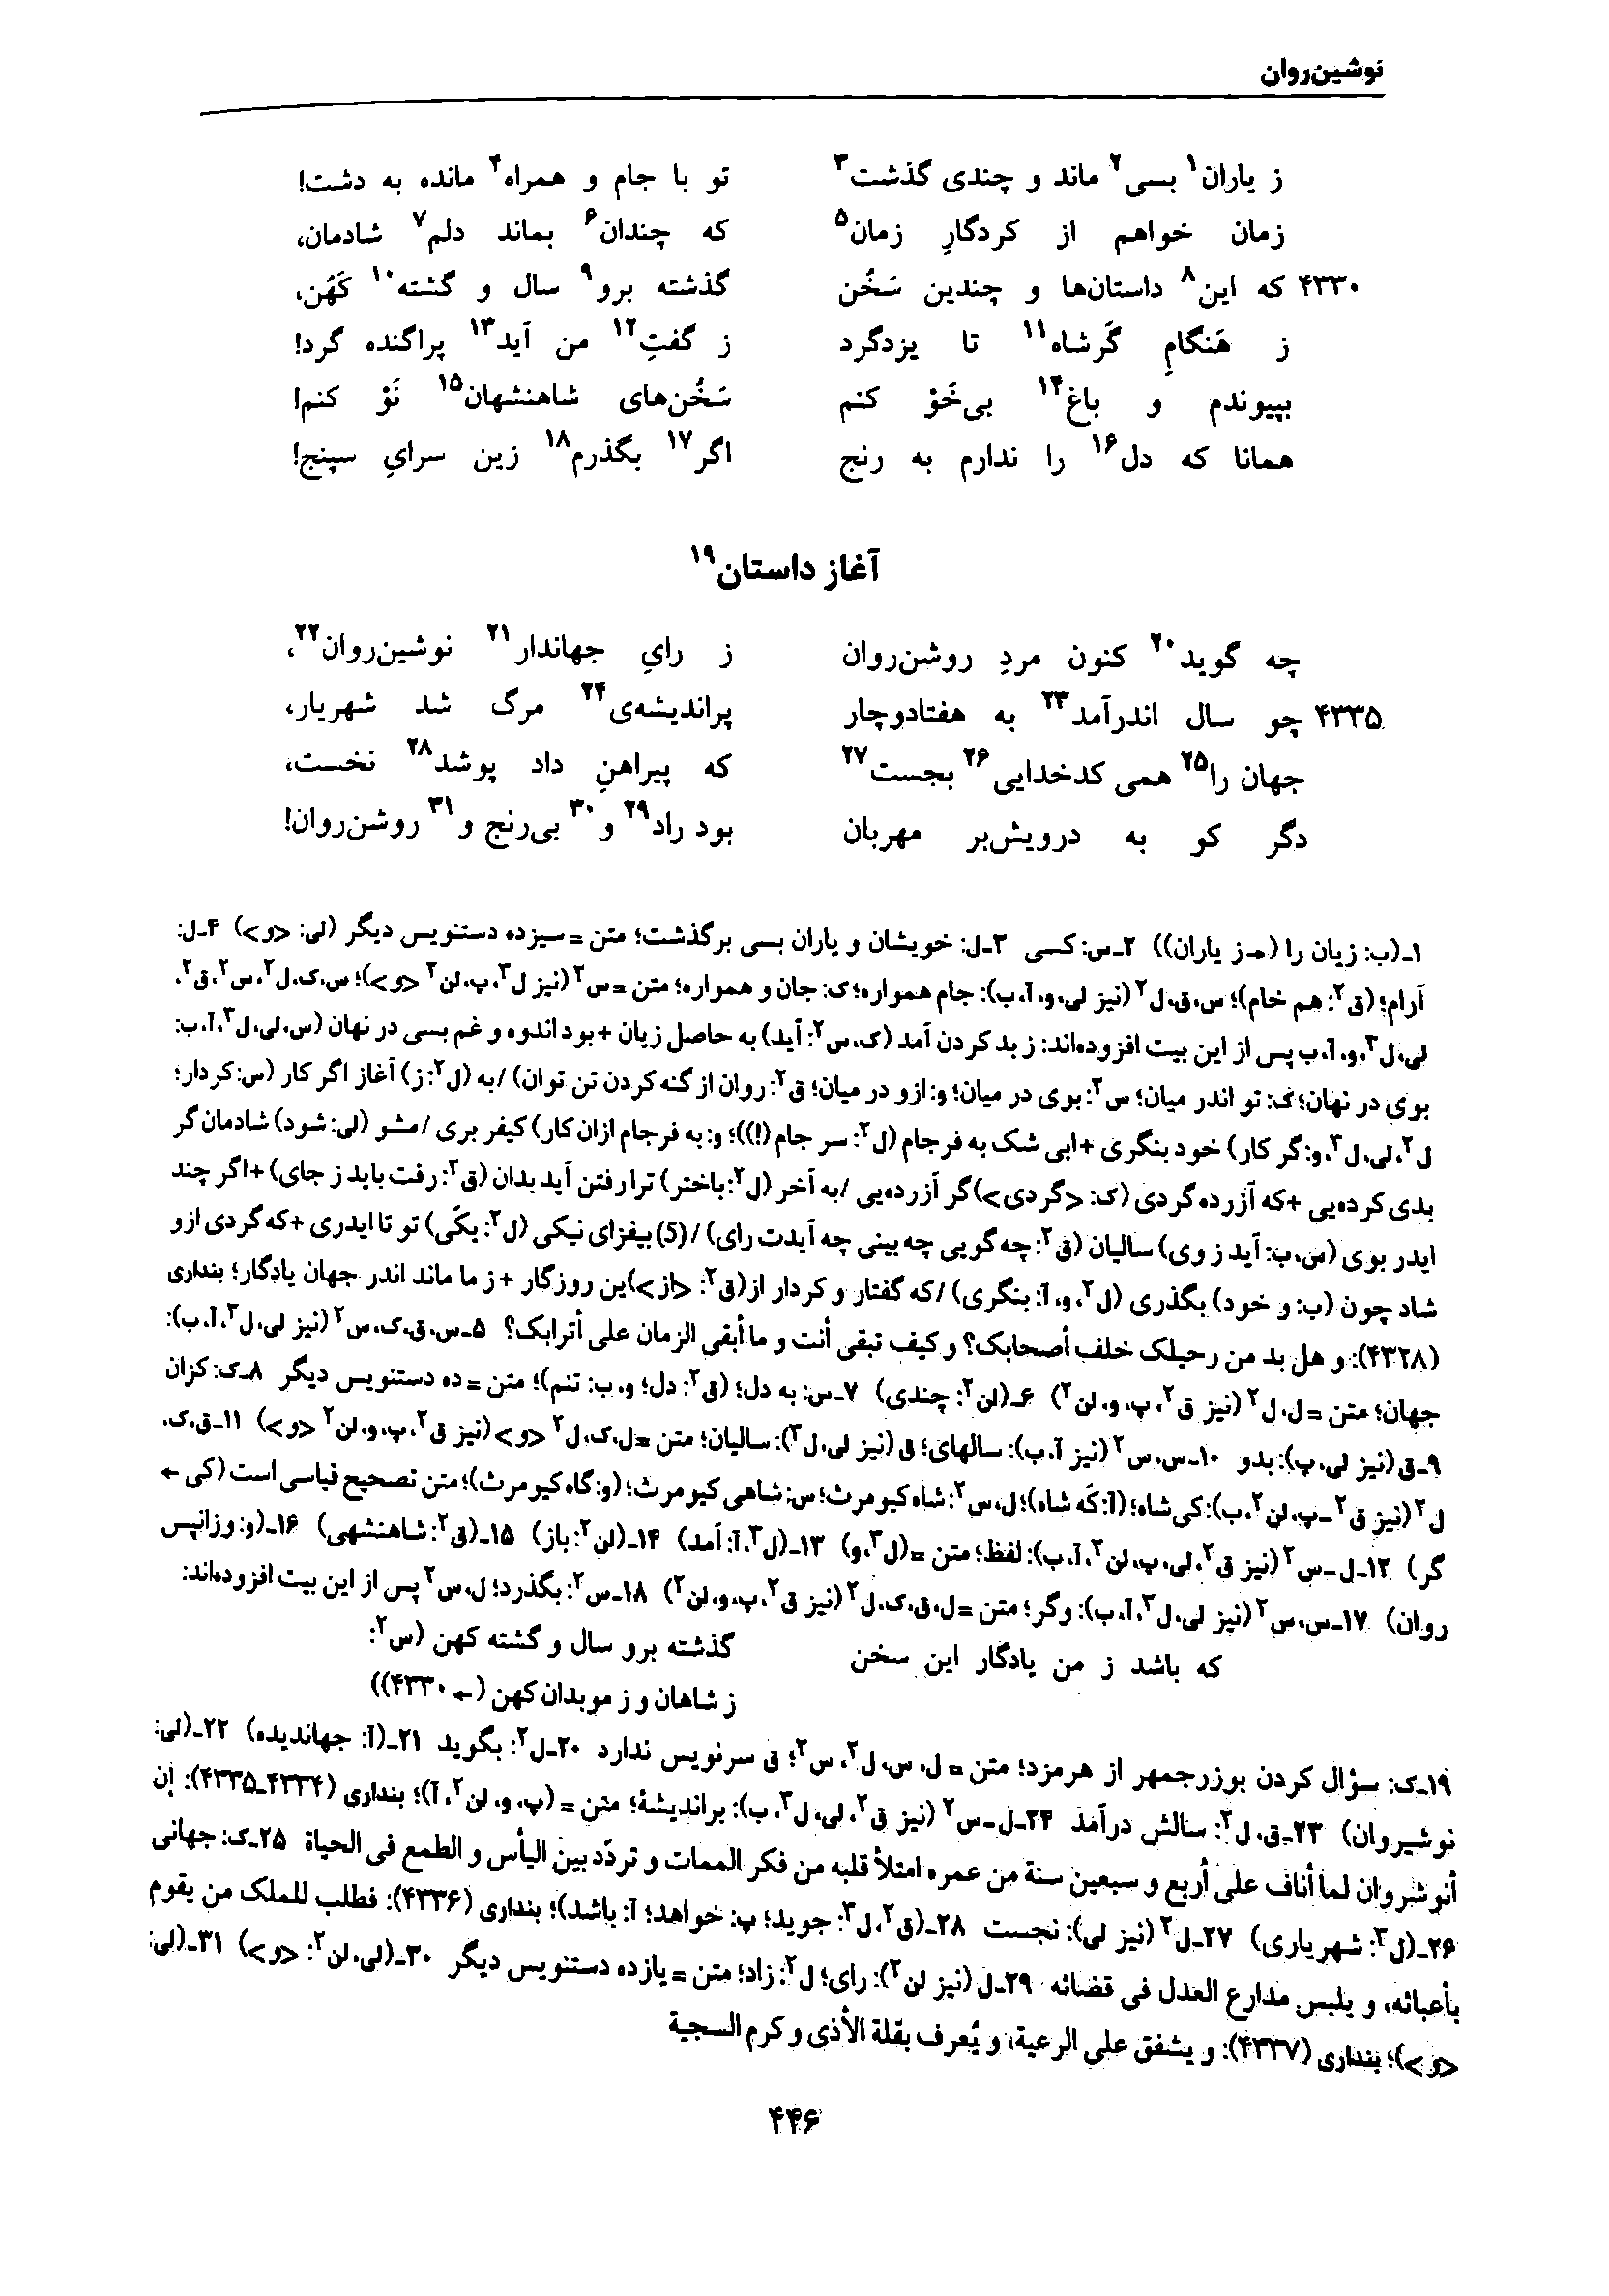 نوشین‌روان
ز یاران۱ بسی۲ ماند و چندی گذشت۳ تو با جام و همراه۴ مانده به دشت!
زمان خواهم از کردگارِ زمان۵ که چندان۶ بماند دلم۷ شادمان،
۴۳۳۰ که این۸ داستان‌ها و چندین سَخُن گذشته برو۹ سال و گشته۱۰ کَهُن،
ز هَنگامِ گَرشاه۱۱ تا یزدگرد ز گفتِ۱۲ من آید۱۳ پراگنده گرد!
بپیوندم و باغ۱۴ بی‌خَوْ کنم سَخُن‌های شاهنشهان۱۵ نَوْ کنم!
همانا که دل۱۶ را ندارم به رنج اگر۱۷ بگذرم۱۸ زین سرایِ سپنج!
آغاز داستان۱۹
چه گوید۲۰ کنون مردِ روشن‌روان ز رایِ جهاندار۲۱ نوشین‌روان۲۲،
۴۳۳۵ چو سال اندرآمد۲۳ به هفتادوچار پراندیشه‌ی۲۴ مرگ شد شهریار،
جهان را۲۵ همی کدخدایی۲۶ بجست۲۷ که پیراهنِ داد پوشد۲۸ نخست،
دگر کو به درویش‌بر مهربان بود راد۲۹ و۳۰ بی‌رنج و۳۱ روشن‌روان!
۱ـ(ب: زیان را (←ز یاران)) ۲ـس: کسی ۳ـل: خویشان و یاران بسی برگذشت؛ متن = سیزده دستنویس دیگر (لی: <و>) ۴ـل:
آرام؛ (ق۲: هم خام)؛ س، ق، ل۲ (نیز لی، و، آ، ب): جام همواره؛ ک: جان و همواره؛ متن = س۲ (نیز ل۳، پ، لن۲ <و>)؛ س، ک، ل۲، س۲، ق۲،
لی، ل۳، و، آ، ب پس از این بیت افزوده‌اند: ز بد کردن آمد (ک، س۲: آید) به حاصل زیان + بود اندوه و غم بسی در نهان (س، لی، ل۳، آ، ب:
بوی در نهان؛ ک: تو اندر میان؛ س۲: بوی در میان؛ و: ازو در میان؛ ق۲: روان از گنه کردن تن توان) / به (ل۲: ز) آغاز اگر کار (س: کردار؛
ل۲، لی، ل۳، و: گر کار) خود بنگری + ابی شک به فرجام (ل۲: سر جام (!))؛ و: به فرجام ازان کار) کیفر بری / مشو (لی: شود) شادمان گر
بدی کرده‌یی + که آزرده گردی (ک: <گردی>) گر آزرده‌یی / به آخر (ل۲: باختر) ترا رفتن آید بدان (ق۲: رفت باید ز جای) + اگر چند
ایدر بوی (س، ب: آید ز وی) سالیان (ق۲: چه گویی چه بینی چه آیدت رای) / (5) بیفزای نیکی (ل۲: یکّی) تو تا ایدری + که گردی ازو
شاد چون (ب: و خود) بگذری (ل۲، و، آ: بنگری) / که گفتار و کردار از (ق۲: <از>) این روزگار + ز ما ماند اندر جهان یادگار؛ بنداری
(۴۳۲۸): و هل بد من رحیلک خلف أصحابک؟ و کیف تبقی أنت و ما أبقی الزمان علی أترابک؟ ۵ـس، ق، ک، س۲ (نیز لی، ل۳، آ، ب):
جهان؛ متن = ل، ل۲ (نیز ق۲، پ، و، لن۲) ۶ـ(لن۲: چندی) ۷ـس: به دل؛ (ق۲: دل؛ و، ب: تنم)؛ متن = ده دستنویس دیگر ۸ـک: کزان
۹ـق (نیز لی، پ): بدو ۱۰ـس، س۲ (نیز آ، ب): سالهای؛ ق (نیز لی، ل۳): سالیان؛ متن = ل، ک، ل۲ <و> (نیز ق۲، پ، و، لن۲ <و>) ۱۱ـق، ک،
ل۲ (نیز ق۲ ـپ، لن۲، ب): کی شاه؛ (آ: که شاه)؛ ل، س۲: شاه کیومرث؛ س: شاهی کیومرث؛ (و: گاه کیومرث)؛ متن تصحیح قیاسی است (کی ←
گر) ۱۲ـل ـ س۲ (نیز ق۲، لی، پ، لن۲، آ، ب): لفظ؛ متن = (ل۳، و) ۱۳ـ(ل۳، آ: آمد) ۱۴ـ(لن۲: باز) ۱۵ـ(ق۲: شاهنشهی) ۱۶ـ(و: وزانپس
روان) ۱۷ـس، س۲ (نیز لی، ل۳، آ، ب): وگر؛ متن = ل، ق، ک، ل۲ (نیز ق۲، پ، و، لن۲) ۱۸ـس۲: بگذرد؛ ل، س۲ پس از این بیت افزوده‌اند:
که باشد ز من یادگار این سخن گذشته برو سال و گشته کهن (س۲:
ز شاهان و ز موبدان کهن (← ۴۳۳۰))
۱۹ـک: سؤال کردن بوزرجمهر از هرمزد؛ متن = ل، س، ل۲، س۲؛ ق سرنویس ندارد ۲۰ـل۲: بگوید ۲۱ـ(آ: جهاندیده) ۲۲ـ(لی:
نوشیروان) ۲۳ـق، ل۲: سالش درآمد ۲۴ـل ـ س۲ (نیز ق۲، لی، ل۳، ب): براندیشهٔ؛ متن = (پ، و، لن۲، آ)؛ بنداری (۴۳۳۴ـ۴۳۳۵): إن
أنوشروان لما أناف علی أربع و سبعین سنة من عمره امتلأ قلبه من فکر الممات و تردّد بین الیأس و الطمع فی الحیاة ۲۵ـک: جهانی
۲۶ـ(ل۳: شهریاری) ۲۷ـل۲ (نیز لی): نجست ۲۸ـ(ق۲، ل۳: جوید؛ پ: خواهد؛ آ: باشد)؛ بنداری (۴۳۳۶): فطلب للملک من یقوم
بأعبائه، و یلبس مدارع العدل فی قضائه ۲۹ـل (نیز لن۲): رای؛ ل۲: زاد؛ متن = یازده دستنویس دیگر ۳۰ـ(لی، لن۲: <و>) ۳۱ـ(لی:
<و>)؛ بنداری (۴۳۳۷): و یشفق علی الرعیة، و یُعرف بقلة الأذی و کرم السجیة
۴۴۶